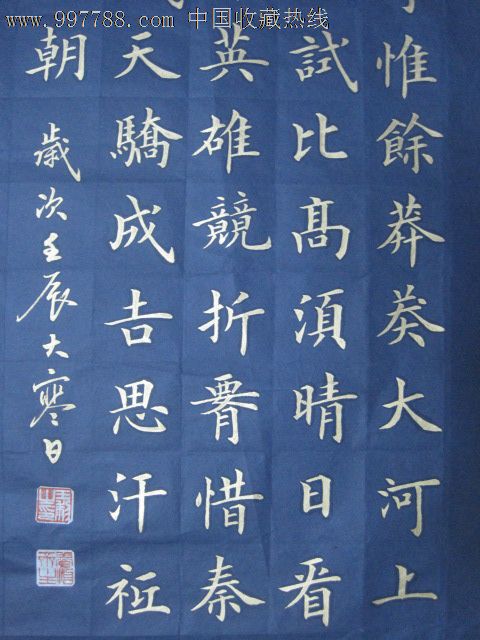 www.997788.com 中国收藏热线
惟餘莽莽大河上
試比髙須晴日看
英雄競折腰惜秦
天驕成吉思汗祗
朝
歲次壬辰大寒日